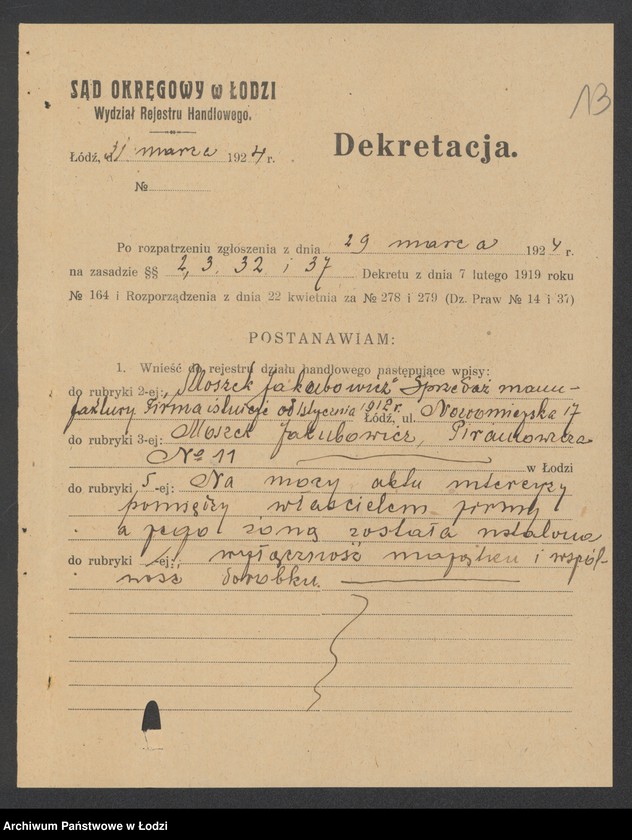 13
SĄD OKRĘGOWY w ŁODZI
Wydział Rejestru Handlowego.
Dekretacja.
Łódź, d. 31 marca 1924 r.
№
Po rozpatrzeniu zgłoszenia z dnia 29 marca 1924 r.
na zasadzie §§ 2, 3. 32 i 37 Dekretu z dnia 7 lutego 1919 roku
№ 164 i Rozporządzenia z dnia 22 kwietnia za № 278 i 279 (Dz. Praw № 14 i 37)
POSTANAWIAM:
1. Wnieść do rejestru działu handlowego następujące wpisy:
do rubryki 2-ej: „Moszek Jakubowicz" Sprzedaż manu-
faktury Firma istnieje od 1 stycznia 1912 r. Łódź, ul. Nowomiejska 17
do rubryki 3-ej: Moszek Jakubowicz, Piramowicza
№ 11 w Łodzi
do rubryki 5-ej: Na mocy aktu intercyzy
pomiędzy właścicielem firmy
a jego żoną została ustalona
do rubryki -ej: wyłączność majątku i wspól-
ność dorobku.
Archiwum Państwowe w Łodzi